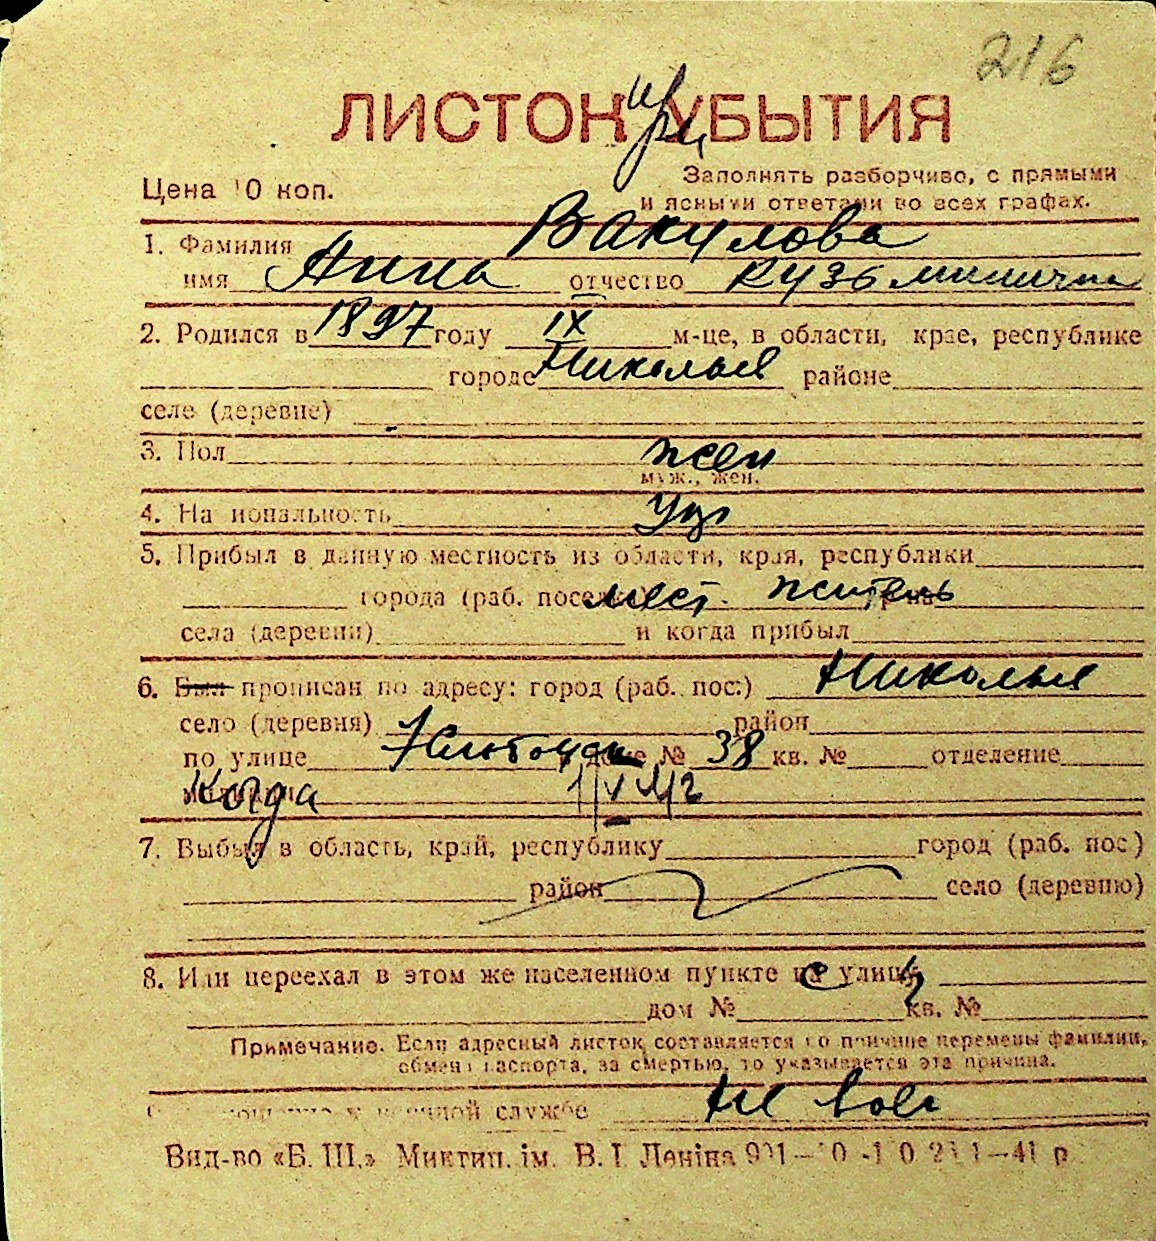 216
ЛИСТОК при УБЫТИЯ
Цена 10 коп.
Заполнять разборчиво, с прямыми
и ясными ответами во всех графах.
1. Фамилия Вакулова
имя Анна отчество Кузьминична
2. Родился в 1897 году IX м-це, в области, крае, республике
городе Николаев районе
селе (деревне)
3. Пол жен
муж., жен.
4. Национальность
5. Прибыл в данную местность из области, края, республики
города (раб. поселка) мест. житель
села (деревни) и когда прибыл
6. Был прописан по адресу: город (раб. пос.) Николаев
село (деревня) район
по улице доме № 38 кв. № отделение
Когда 1/V 42
7. Выбыл в область, край, республику город (раб. пос.)
район село (деревню)
8. Или переехал в этом же населенном пункте улицу
дом № кв. №
Примечание. Если адресный листок составляется по причине перемены фамилии,
обмена паспорта, за смертью, то указывается эта причина.
военной службе не воен
Вид-во «Б. Ш.» Миктип. ім. В. І. Леніна 41 р.